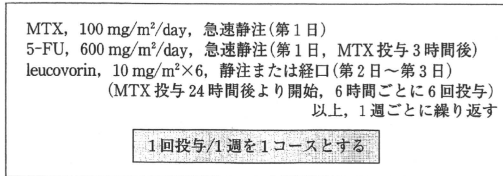 MTX, 100 mg/m²/day, 急速静注(第1日)
5-FU, 600 mg/m²/day, 急速静注(第1日, MTX投与3時間後)
leucovorin, 10 mg/m²×6, 静注または経口(第2日〜第3日)
(MTX投与24時間後より開始, 6時間ごとに6回投与)
以上, 1週ごとに繰り返す
1回投与/1週を1コースとする